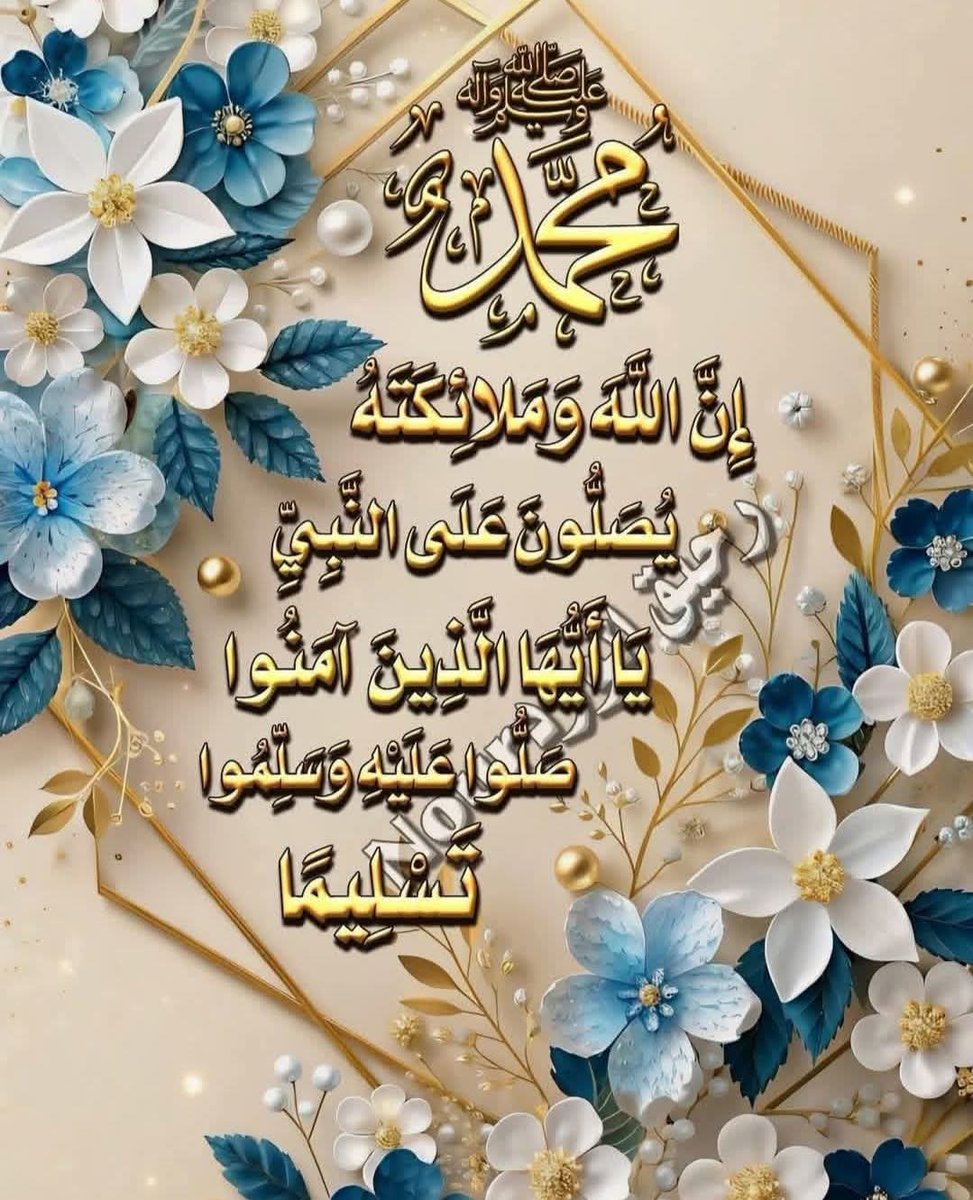 صلى الله عليه وآله وسلم
محمد
إِنَّ اللَّهَ وَمَلائِكَتَهُ
يُصَلُّونَ عَلَى النَّبِيِّ
يَا أَيُّهَا الَّذِينَ آمَنُوا
صَلُّوا عَلَيْهِ وَسَلِّمُوا
تَسْلِيمًا